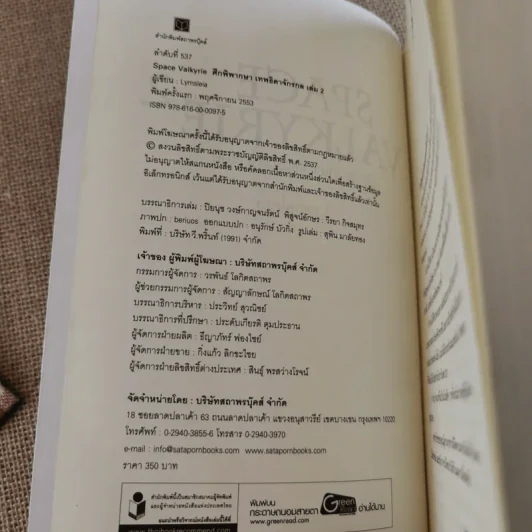 สำนักพิมพ์สถาพรบุ๊คส์
ลำดับที่ 537
Space Valkyrie ศึกพิพากษา เทพธิดาจักรกล เล่ม 2
ผู้เขียน : Lymsleia
พิมพ์ครั้งแรก : พฤศจิกายน 2553
ISBN 978-616-00-0097-5
พิมพ์โฆษณาครั้งนี้ได้รับอนุญาตจากเจ้าของลิขสิทธิ์ตามกฎหมายแล้ว
© สงวนลิขสิทธิ์ตามพระราชบัญญัติลิขสิทธิ์ พ.ศ. 2537
ไม่อนุญาตให้สแกนหนังสือ หรือคัดลอกเนื้อหาส่วนหนึ่งส่วนใดเพื่อสร้างฐานข้อมูล
อิเล็กทรอนิกส์ เว้นแต่ได้รับอนุญาตจากสำนักพิมพ์และเจ้าของลิขสิทธิ์แล้วเท่านั้น
บรรณาธิการเล่ม : ปิยนุช วงษ์กาญจนรัตน์ พิสูจน์อักษร : วีรยา กิจสมุทร
ภาพปก : beriuos ออกแบบปก : อนุรักษ์ บัวกิ่ง รูปเล่ม : สุพิน มาลัยทอง
พิมพ์ที่ : บริษัท วี.พริ้นท์ (1991) จำกัด
เจ้าของ ผู้พิมพ์ผู้โฆษณา : บริษัทสถาพรบุ๊คส์ จำกัด
กรรมการผู้จัดการ : วรพันธ์ โลกิตสถาพร
ผู้ช่วยกรรมการผู้จัดการ : สัญญาลักษณ์ โลกิตสถาพร
บรรณาธิการบริหาร : ประวิทย์ สุวณิชย์
บรรณาธิการที่ปรึกษา : ประดับเกียรติ ตุมประธาน
ผู้จัดการฝ่ายผลิต : ธีญาภัทร์ ฟองไชย์
ผู้จัดการฝ่ายขาย : กิ่งแก้ว ลิกขะไชย
ผู้จัดการฝ่ายลิขสิทธิ์ต่างประเทศ : สินธุ์ พรสว่างโรจน์
จัดจำหน่ายโดย : บริษัทสถาพรบุ๊คส์ จำกัด
18 ซอยลาดปลาเค้า 63 ถนนลาดปลาเค้า แขวงอนุสาวรีย์ เขตบางเขน กรุงเทพฯ 10220
โทรศัพท์ : 0-2940-3855-6 โทรสาร 0-2940-3970
e-mail : info@satapornbooks.com, www.satapornbooks.com
ราคา 350 บาท
สำนักพิมพ์นี้เป็นสมาชิกสมาคมผู้จัดพิมพ์
และผู้จำหน่ายหนังสือแห่งประเทศไทย
แนะนำหรือวิจารณ์หนังสือเล่มนี้ได้ที่
www.thaibookrecommend.com
พิมพ์บน
กระดาษถนอมสายตา
Green Read
อ่านได้นาน
www.greenread.com